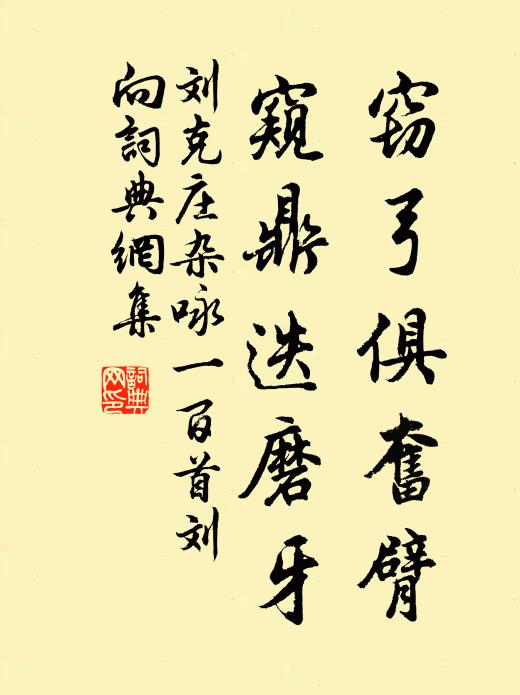 窃弓俱奮臂
窺鼎迭磨牙
刘克庄杂咏一百首刘
向詞典網集
詞典网印